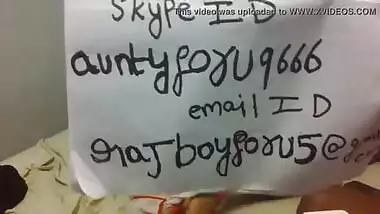 This video was uploaded to WWW.XVIDEOS.COM
Skype ID
auntyforu9666
email ID
rajboyforu5@gmail